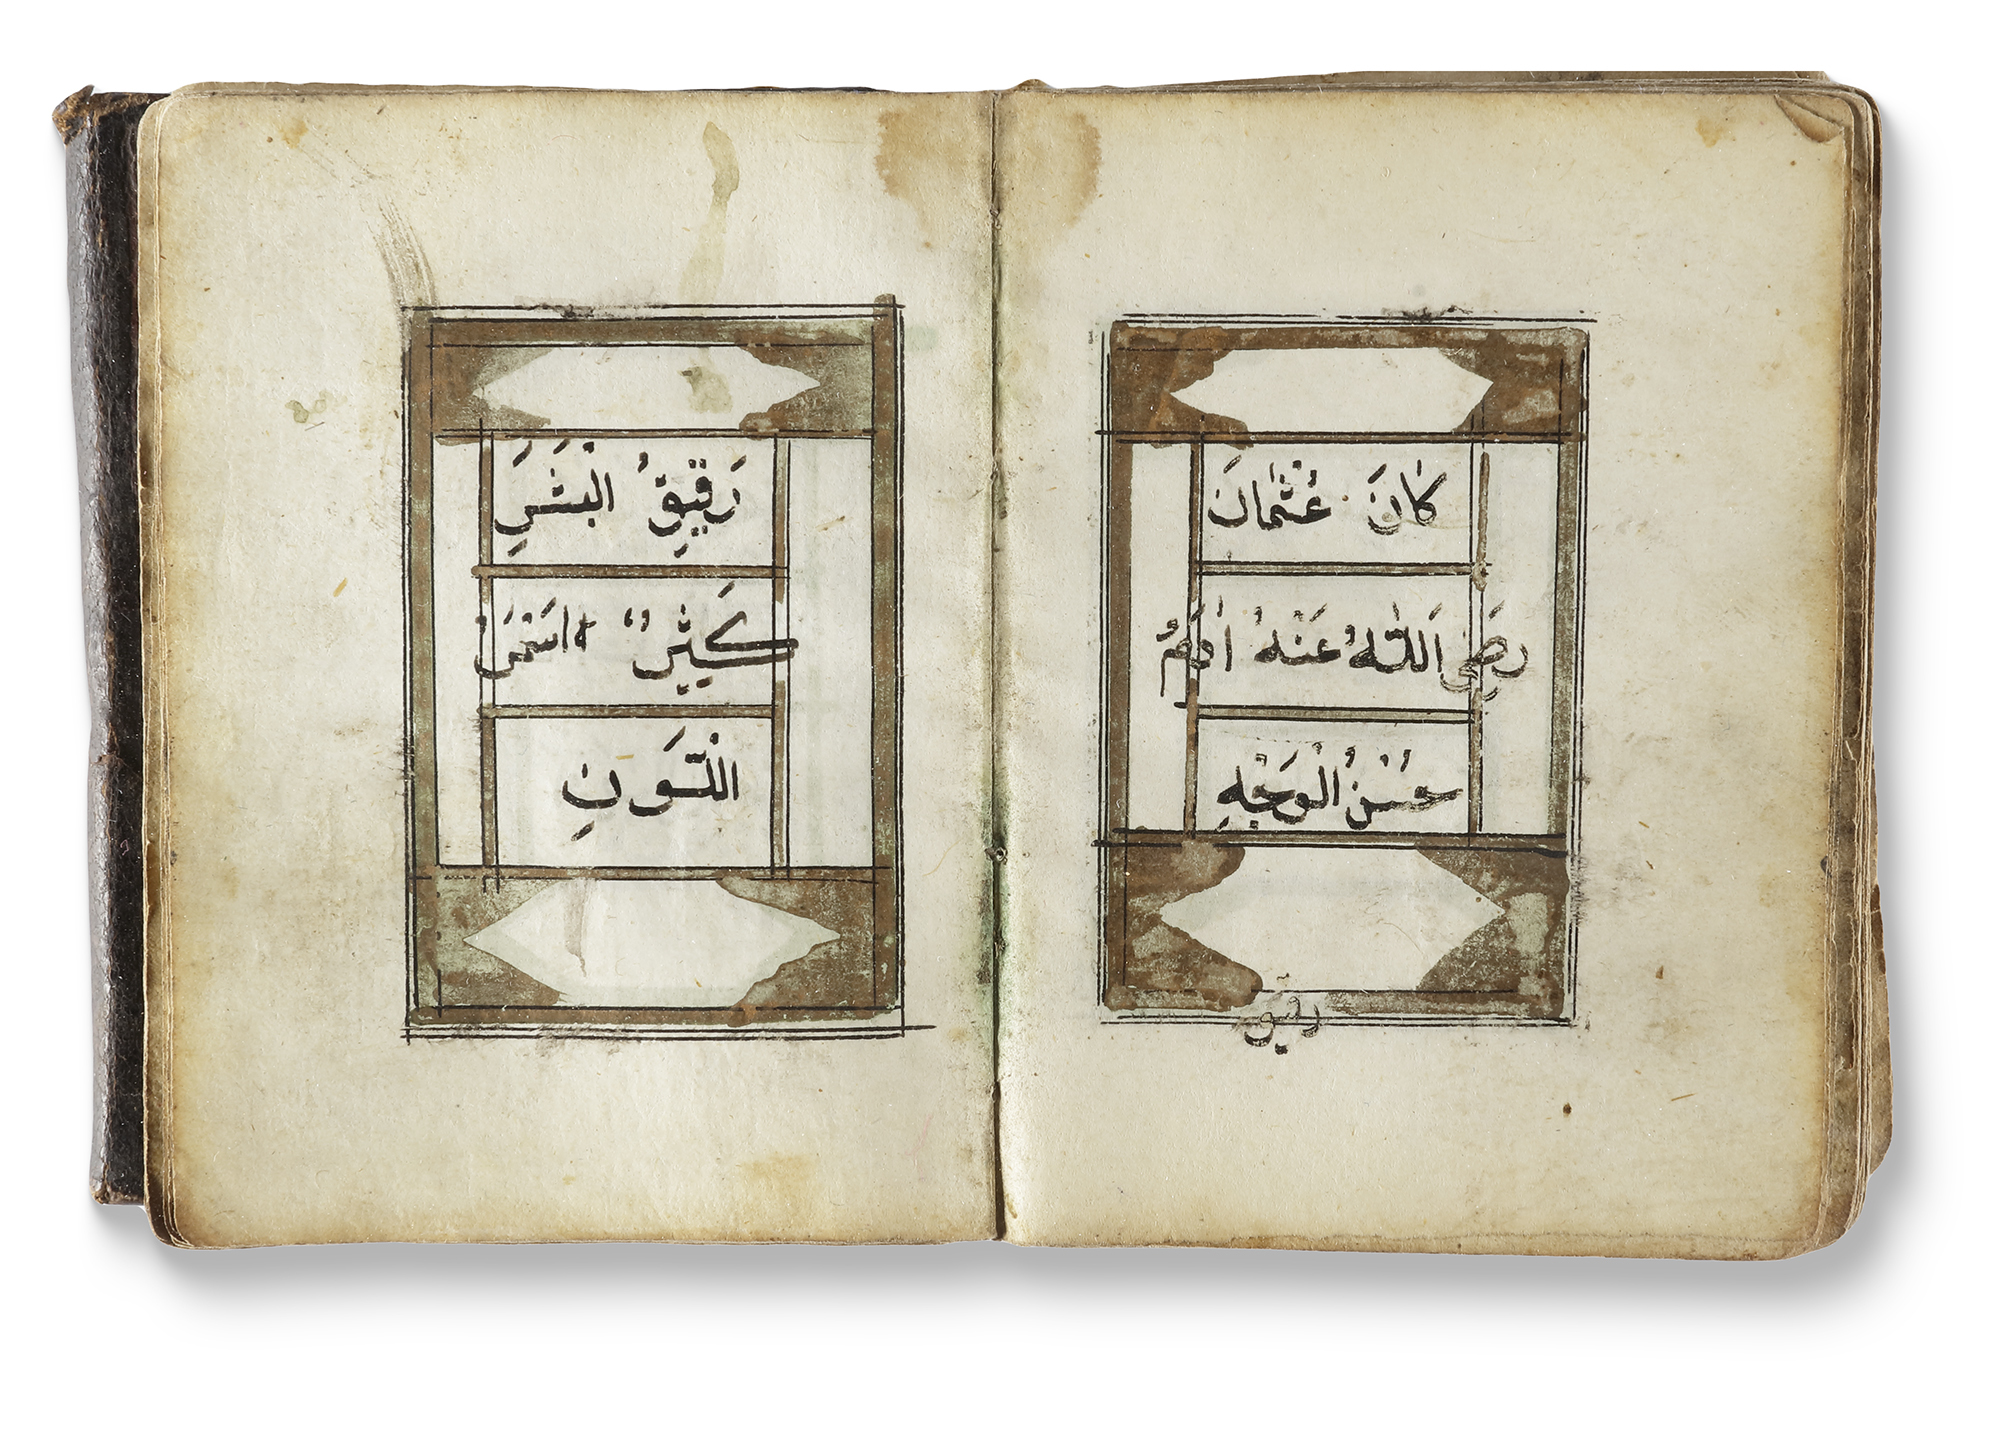 كَانَ عُثْمَانَ
رَضِيَ اَللّٰهُ عَنْهُ
حُسْنُ الْوَجْهِ
رقيق
رَقِيقُ الْبَشَرِ
كَثِيْرٌ اَسْمَرُ
اللَّوَنِ